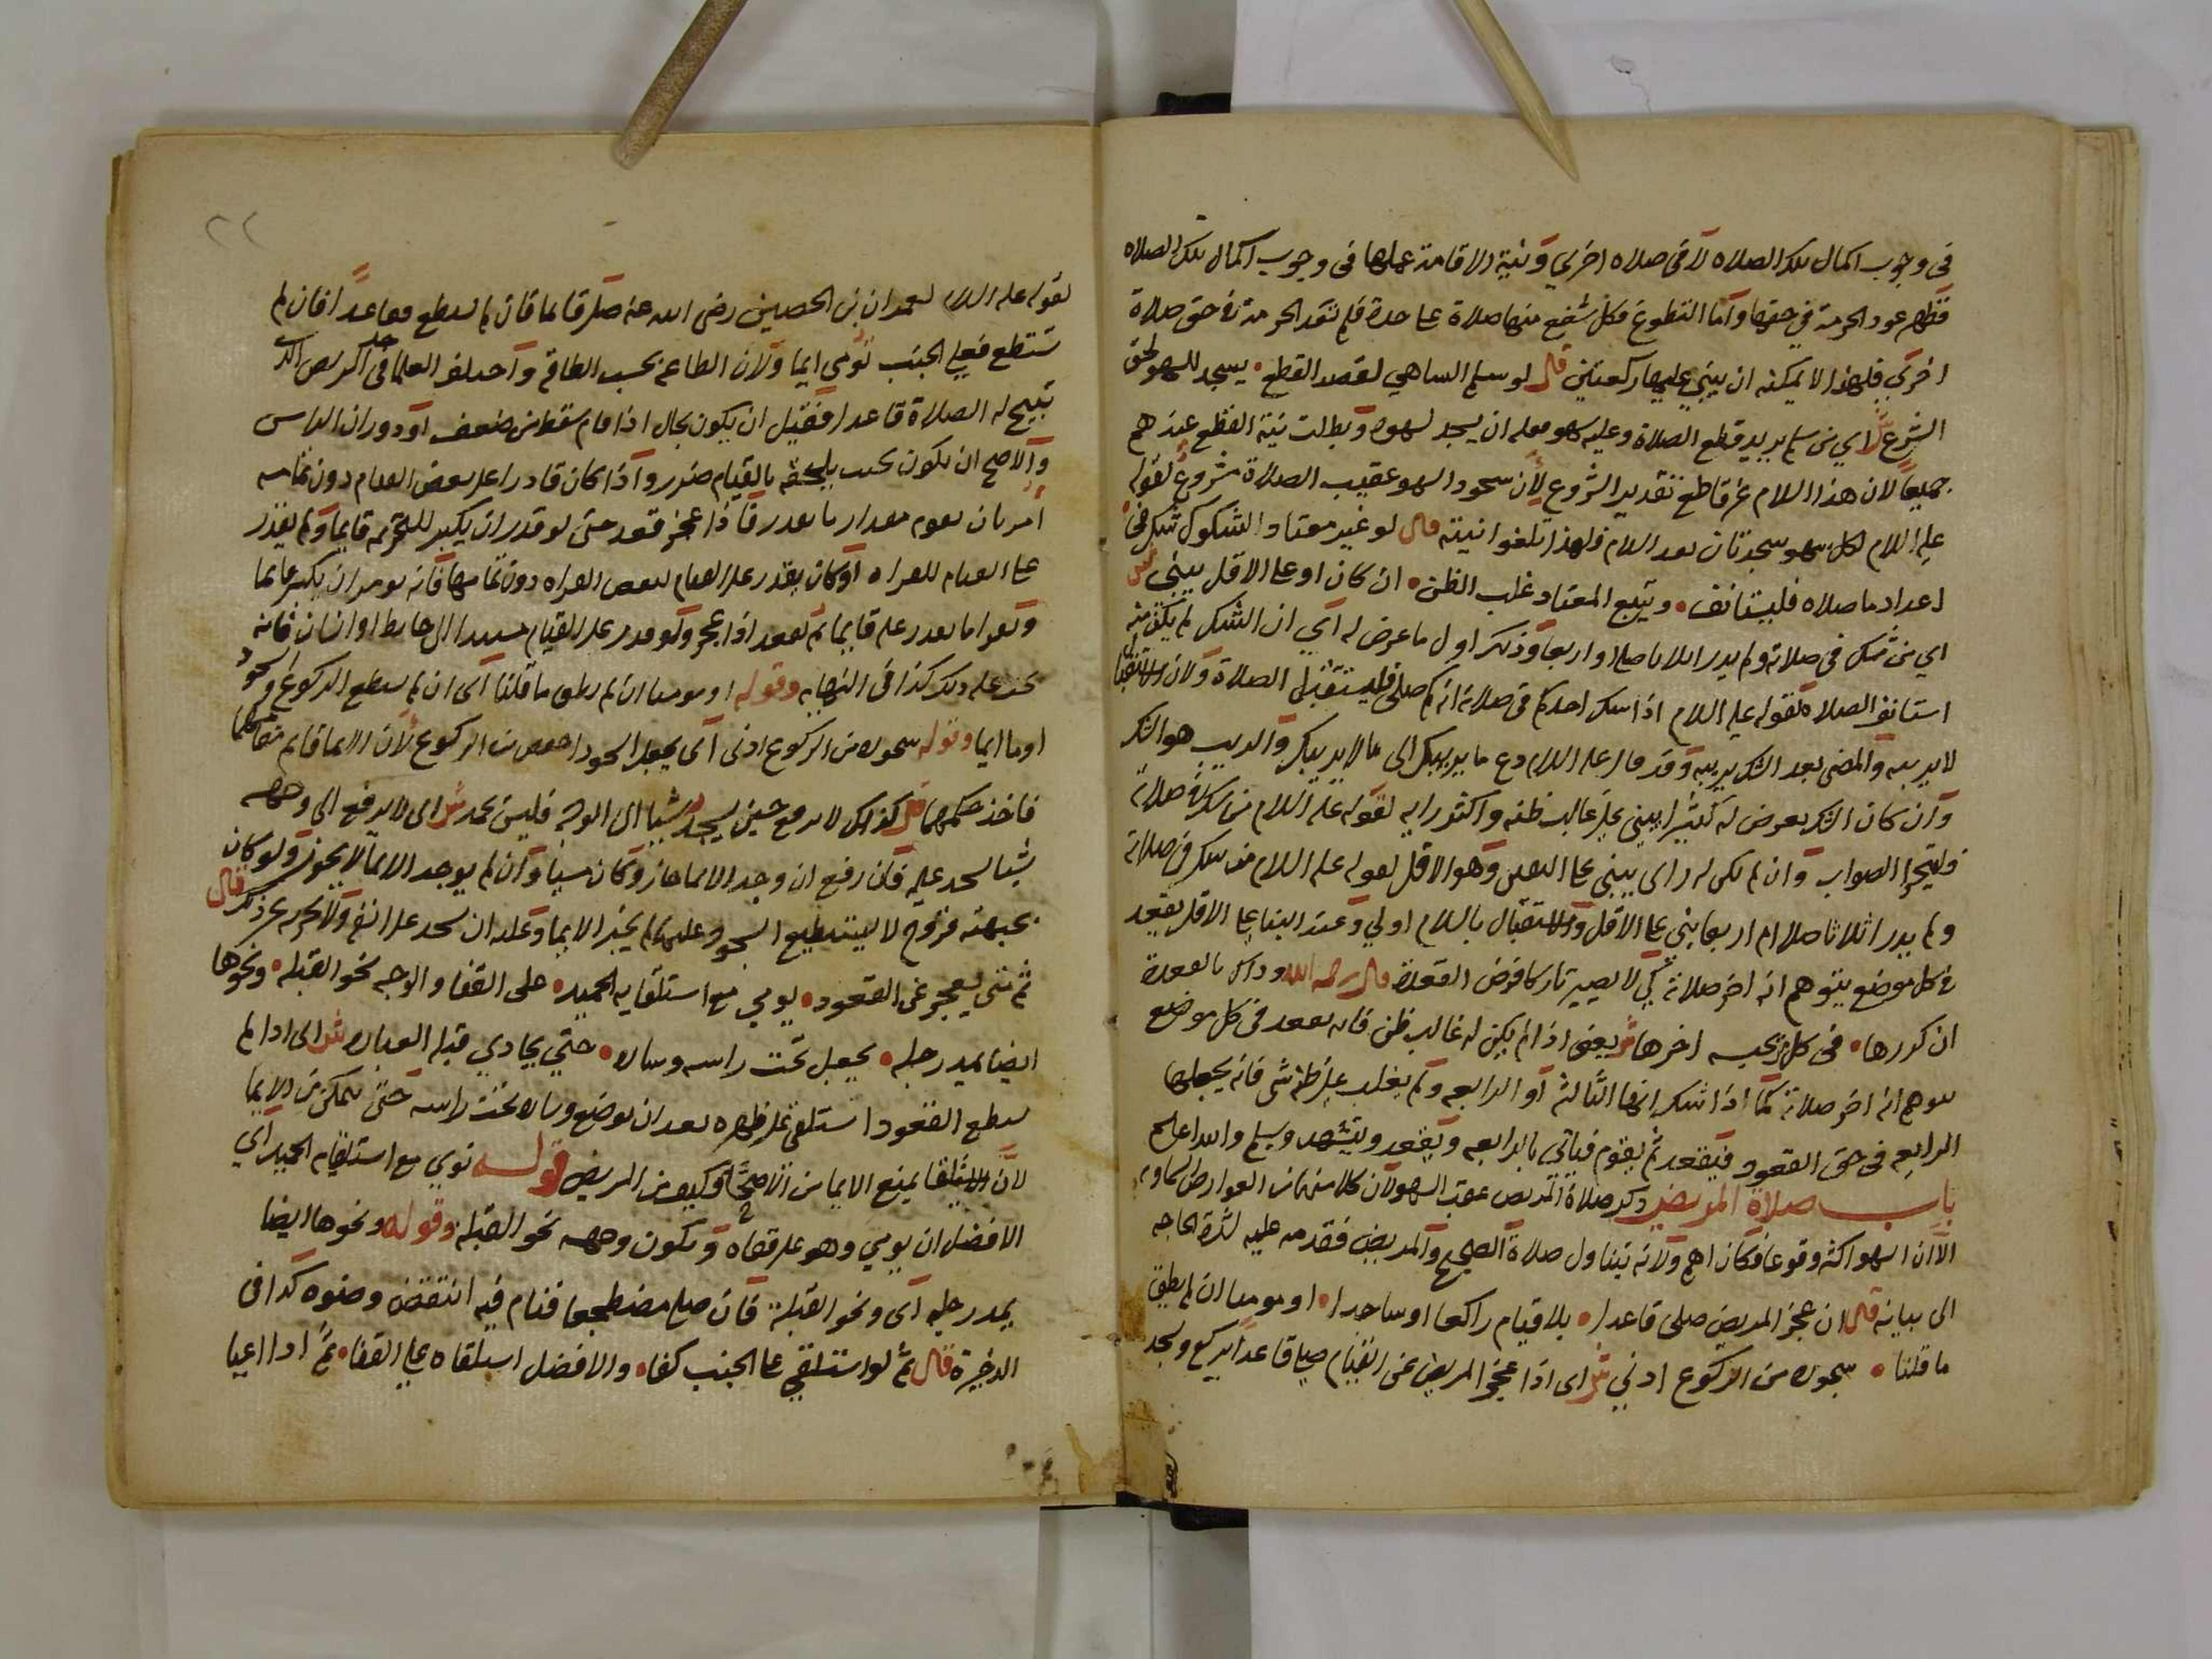 في وجوب اكمال تلك الصلاه لا في صلاه اخري ونية الاقامة عملها في وجوب اكمال تلك الصلاه
فظهر عود الحرمة في حقها واما التطوع فكل شفع منها صلاة على حدة فلم تنعقد الحرمة في حق صلاة
اخري فلهذا لا يمكنه ان يبني عليها ركعتين قال لو سلم الساهي لقصد القطع • يسجد للسهو لحق
الشرع ش اي من سلم يريد قطع الصلاة وعليه سهو فعليه ان يسجد لسهوه وبطلت نية القطع عندهم
جميعا لان هذا السلام غير قاطع تقدير الشروع لان سجود السهو عقيب الصلاة مشروع لقوله
عليه السلام لكل سهو سجدتان بعد السلام فلهذا تلغوا نيته قال لو غير معتاد الشكوك شك في
اعداد ما صلاه فليستانف • ويتبع المعتاد غلب الظن • ان كان او على الاقل يبني ش
اي من شك في صلاته ولم يدر اثلاثا صلا او اربعا وذلك اول ما عرض له اي ان الشك لم يكن منه
استانف الصلاة لقوله عليه السلام اذا شك احدكم في صلاته انه كم صلى فليستقبل الصلاة ولان الاستقبال
لا يريبه والمضي بعد الشك يريبه وقد قال عليه السلام دع ما يريبك الى ما لا يريبك والريب هو الشك
وان كان الشك يعرض له كثيرا يبني على غالب ظنه واكثر رايه لقوله عليه السلام من شك في صلاته
وليتحرا الصواب وان لم يكن له راى يبني على اليقين وهو الاقل لقوله عليه السلام من شك في صلاته
ولم يدر اثلاثا صلا ام اربعا بنى على الاقل والاستقبال بالسلام اولي وعند البنا على الاقل يقعد
في كل موضع يتوهم انه اخر صلاته كي لا يصير تاركا فرض القعدة قال رحمه الله وذاك بالقعدة
ان كررها • في كل ما يحسبه اخرها ش يعني اذا لم يكن له غالب ظن فانه يقعد في كل موضع
يتوهم انه اخر صلاته كما اذا شك انها الثالثة او الرابعه ولم يغلب على ظنه شى فانه يجعلها
الرابعه في حق القعود فيقعد ثم يقوم فياتي بالرابعه ويقعد ويتشهد ويسلم والله اعلم
باب صلاة المريض ذكر صلاة المريض عقب السهو لان كلا منهما من العوارض السماويه
الا ان السهو اكثر وقوعا فكان اهم ولانه يتناول صلاة الصحيح والمريض فقدمه عليه لشدة الحاجه
الى بيانه قال ان عجز المريض صلى قاعدا • بلا قيام راكعا او ساجدا • او موميا ان لم يطق
ما قلنا • سجوده من الركوع ادني ش اى اذا عجز المريض عن القيام صلى قاعدا يركع ويسجد
٢٢
لقوله عليه السلام لعمران بن الحصين رضى الله عنه صل قائما فان لم تستطع فقاعدا فان لم
تستطع فعلى الجنب تومي ايما ولان الطاعة بحسب الطاقة واختلف العلما في حد المرض الذي
يبيح له الصلاة قاعدا فقيل ان يكون بحال اذا قام سقط من ضعف او دوران الراس
والاصح ان يكون بحيث يلحقه بالقيام ضرر واذا كان قادرا على بعض القيام دون تمامه
امر بان يقوم مقدار ما يقدر فاذا عجز قعد حتى لو قدر ان يكبر للتحريمه قايما ولم يقدر
على القيام للقراه او كان يقدر على القيام لبعض القراه دون تمامها فانه يومر ان يكبر قايما
ويقرا ما يقدر عليه قايما ثم يقعد اذا عجز ولو قدر على القيام مستندا الى حايط او انسان فانه
عليه ذلك كذا في النهايه وقوله او موميا ان لم يطق ما قلنا اى ان لم يستطع الركوع والسجود
اوما ايما وقوله سجوده من الركوع ادنى اى يجعل السجود اخفض من الركوع لان الايما قايم مقامهما
فاخذ حكمهما قال كذلك لا يرفع حين يسجد شيا الى الوجه فليس يحمد ش اى لا يرفع الى وجهه
شيا يسجد عليه فان رفع ان وجد الايما جاز وكان مسيا وان لم يوجد الايما لا يجوز ولو كان
بجبهته قروح لا يستطيع السجود عليها لم يجز الايما وعليه ان يسجد على انفه ولا يجزيه غير ذلك قال
ثم متى يعجز عن القعود • يومي مع استلقايه الحميد • على القفا والوجه نحو القبله • ونحوها
ايضا يمد رجله • يجعل تحت راسه وساده • حتي يحاذي قبلة العباده ش اى اذا لم
يستطع القعود استلقى على ظهره بعد ان يوضع وساده تحت راسه حتى يتمكن من الايما
لان الاستلقا يمنع الايما من الاصحا فكيف من المريض قوله يومي مع استلقايه الحميد اي
الافضل ان يومي وهو على قفاه ويكون وجهه نحو القبلة وقوله ونحوها ايضا
يمد رجليه اى ونحو القبلة فان صلى مضطجعا فنام فيه انتقض وضوه كذا في
الذخيرة قال ثم لو استلقي على الجنب كفا • والافضل استلقاه علي القفا • ثم اذا اعيا